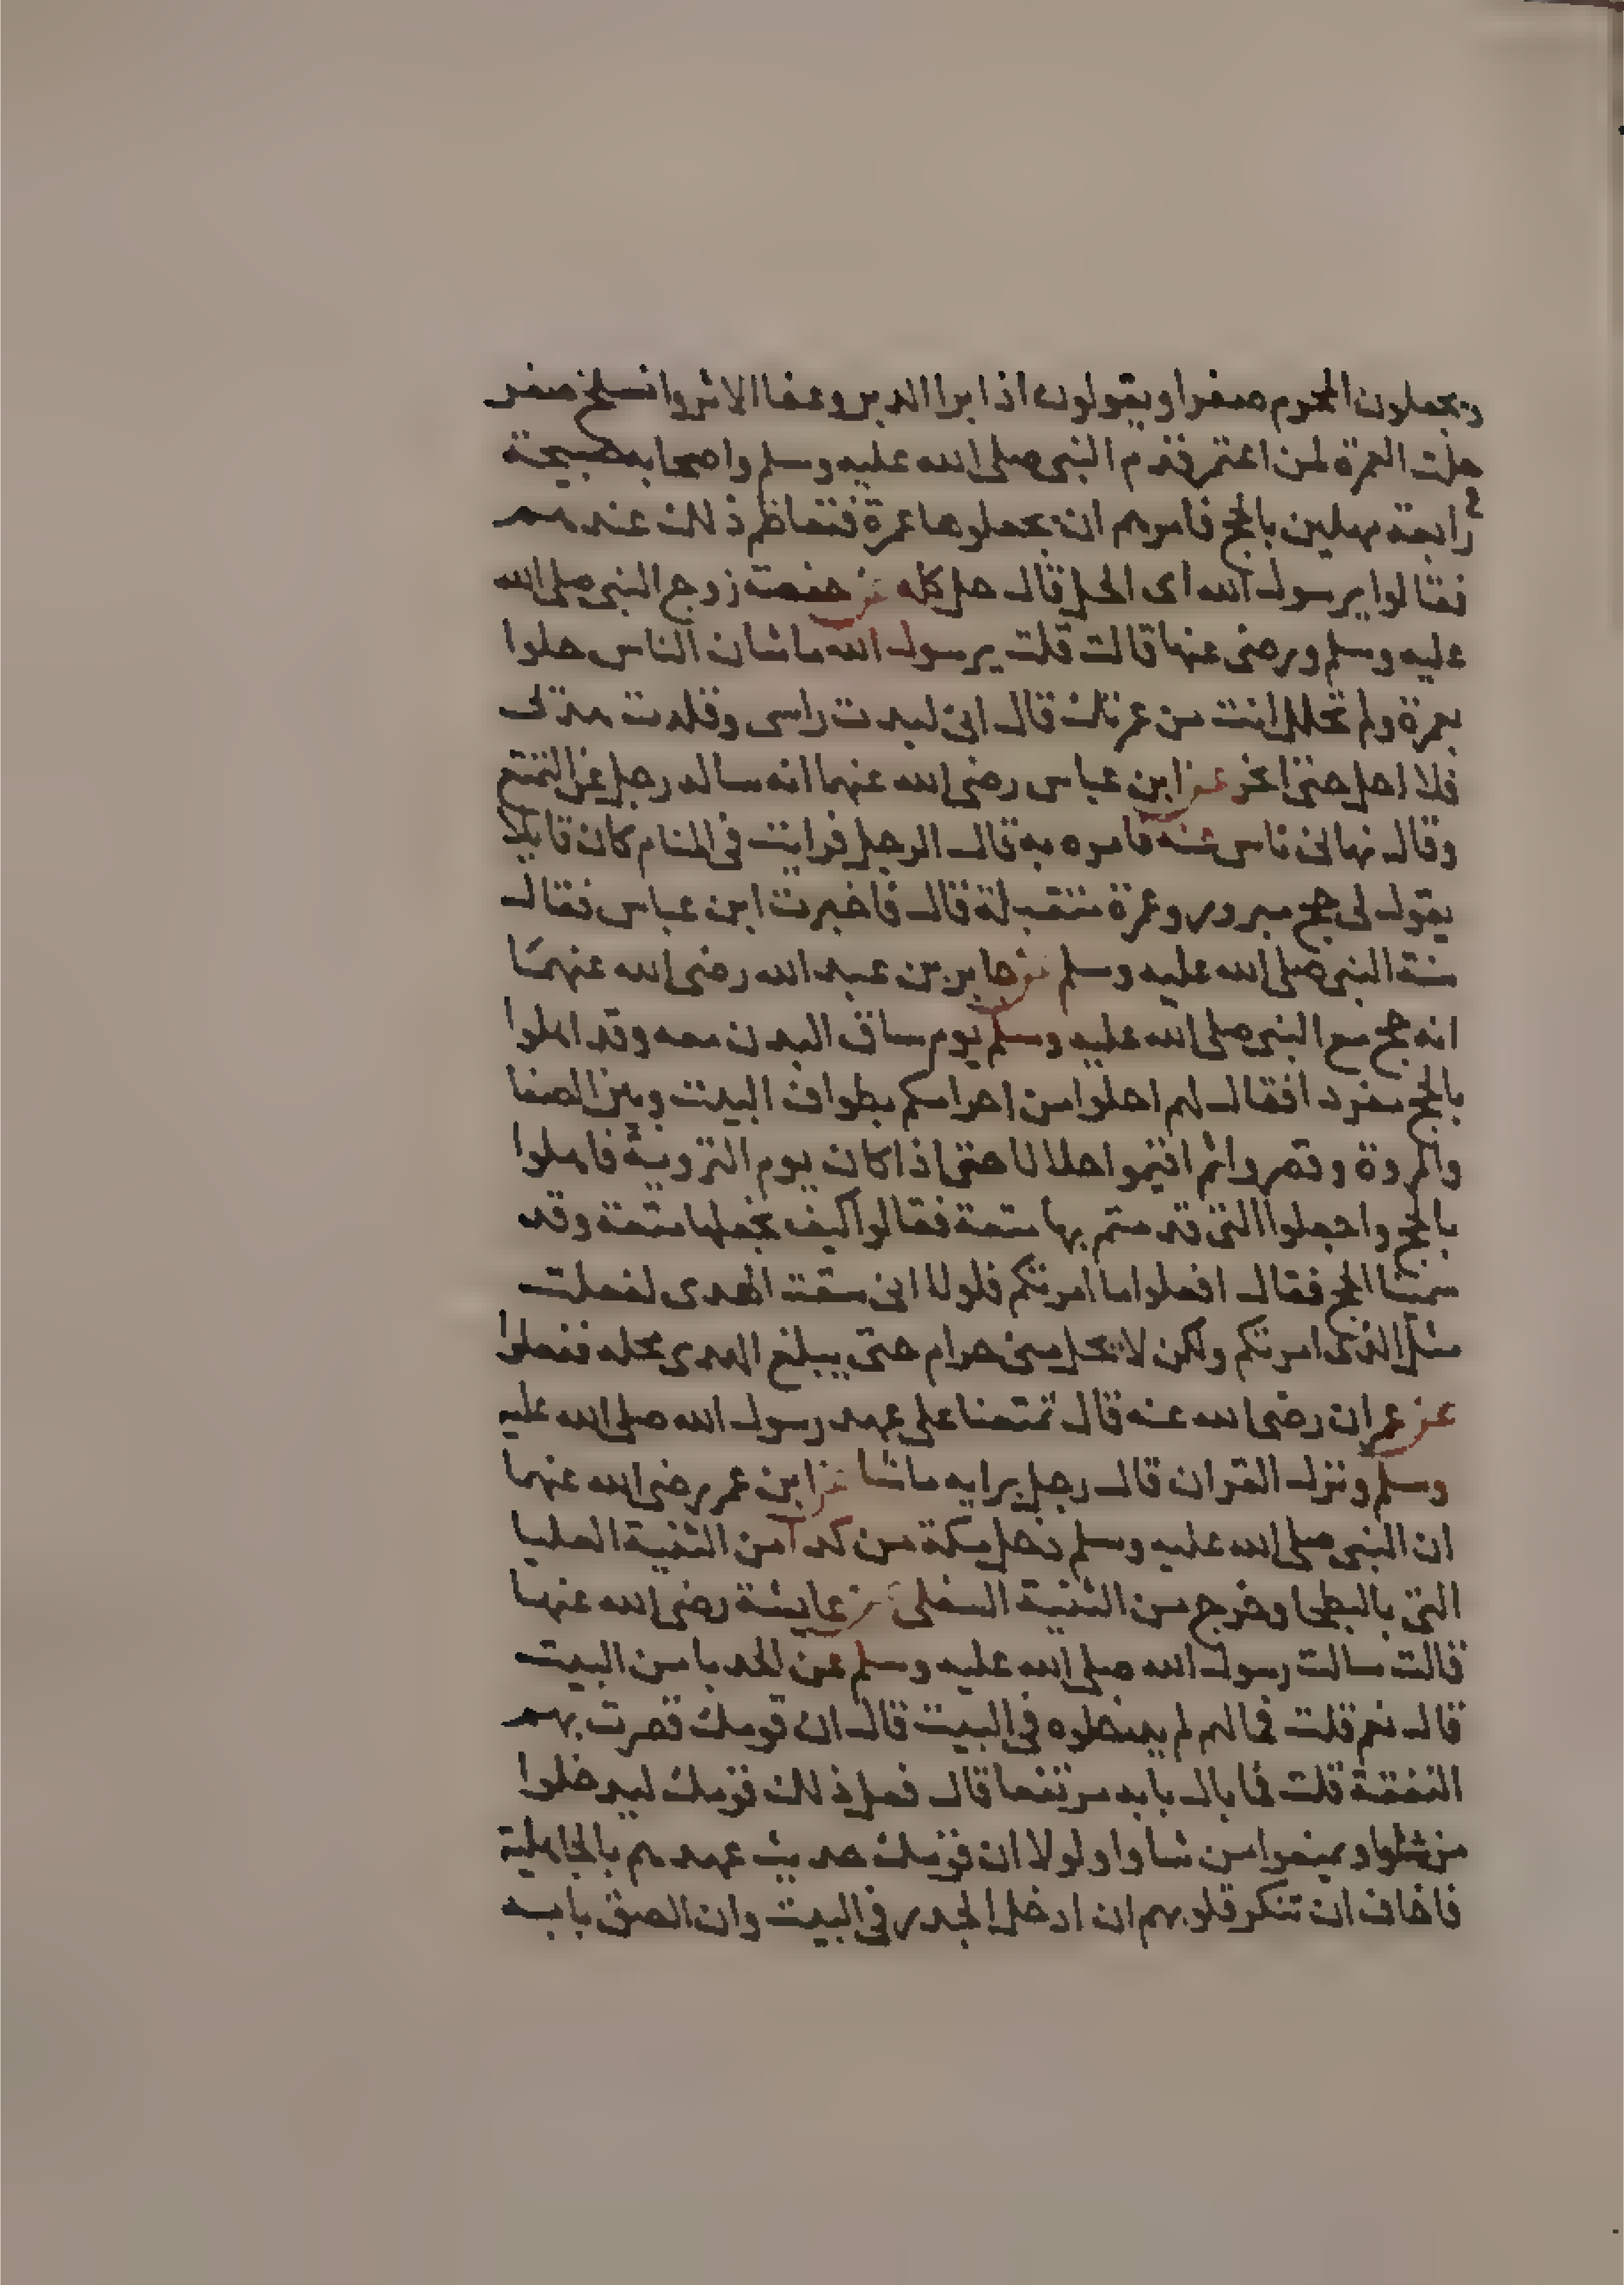 ويجعلون المحرم صفرا ويقولون اذا برا الدبر وعفا الاثر وانسلخ صفر
حلت العمرة لمن اعتمر قدم النبي صلى الله عليه وسلم واصحابه صبيحة
رابعة مهلين بالحج فامرهم ان يجعلوها عمرة فتعاظم ذلك عندهم
فقالوا يرسول الله اى الحل قال حل كله عن حفصة زوج النبي صلى الله
عليه وسلم ورضى عنها قالت قلت يرسول الله ما شان الناس حلوا
بعمرة ولم تحلل انت من عمرتك قال انى لبدت راسى وقلدت هديى
فلا احل حتى انحر عن ابن عباس رضى الله عنهما انه ساله رجل عن التمتع
وقال نهانى ناس عنه فامره به قال الرجل فرايت فى المنام كان قايلا
يقول لى حج مبرور وعمرة متقبلة قال فاخبرت ابن عباس فقال
سنة النبي صلى الله عليه وسلم عن جابر بن عبد الله رضى الله عنهما
انه حج مع النبي صلى الله عليه وسلم يوم ساق البدن معه وقد اهلوا
بالحج مفردا فقال لهم احلوا من احرامكم بطواف البيت وبين الصفا
والمروة وقصروا ثم اقيموا حلالا حتى اذا كان يوم التروية فاهلوا
بالحج واجعلوا التى قدمتم بها متعة فقالوا كيف نجعلها متعة وقد
سمينا الحج فقال افعلوا ما امرتكم فلولا انى سقت الهدى لفعلت
مثل الذى امرتكم ولكن لا يحل منى حرام حتى يبلغ الهدى محله ففعلوا
عن عمران رضى الله عنه قال تمتعنا على عهد رسول الله صلى الله عليه
وسلم ونزل القران قال رجل برايه ما شا عن ابن عمر رضى الله عنهما
ان النبي صلى الله عليه وسلم دخل مكة من كدا من الثنية العليا
التى بالبطحا وخرج من الثنية السفلى عن عايشة رضى الله عنها
قالت سالت رسول الله صلى الله عليه وسلم عن الجدر امن البيت
قال نعم قلت فما لهم لم يدخلوه فى البيت قال ان قومك قصرت بهم
النفقة قلت فما بال بابه مرتفعا قال فعل ذلك قومك ليدخلوا
من شاوا ويمنعوا من شاوا ولولا ان قومك حديث عهدهم بالجاهلية
فاخاف ان تنكر قلوبهم ان ادخل الجدر فى البيت وان الصق بابه